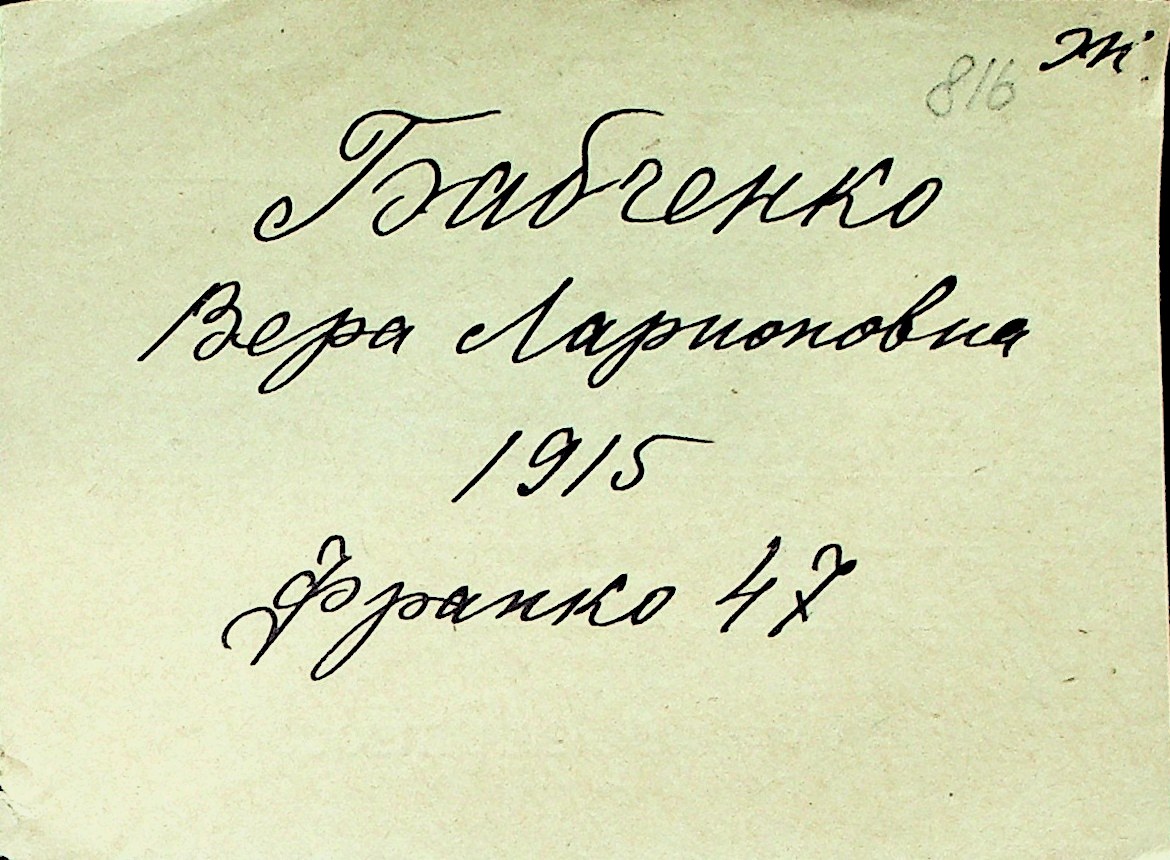 816 Ж.
Бабченко
Вера Ларионовна
1915
Франко 47